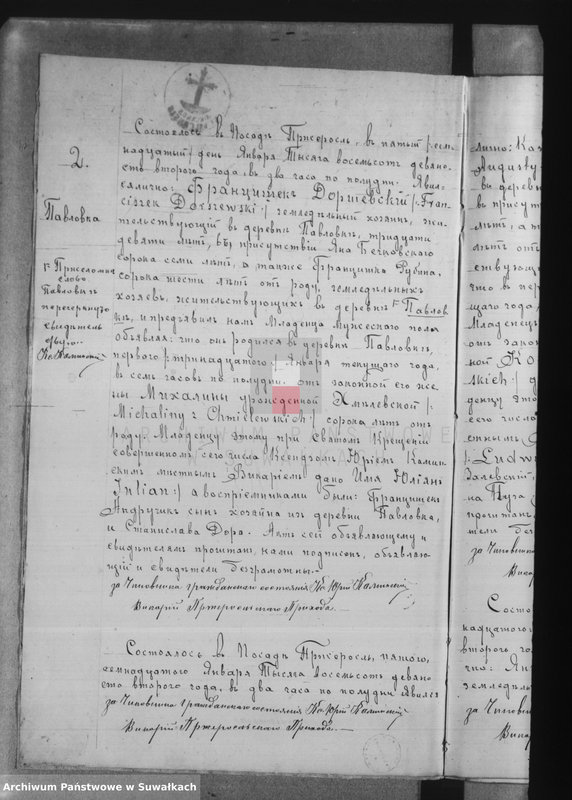 2.
Павловка
Состоялось въ Посадѣ Пржеросль, въ пятый /:сем-
надцатый/ день Января Тысяча восемьсотъ девяно-
сто второго года, въ два часа по полудни. Явил-
ся лично: Францишекъ Доршевскій /:Fran-
ciszek Dorszewski:/ земледѣльный хозяинъ, жи-
тельствующій въ деревнѣ Павловкѣ, тридцати
девяти лѣтъ, въ присутствіи Яна Бечковскаго
сорока семи лѣтъ, а также Францишка Рубина,
сорока шести лѣтъ отъ роду, земледѣльныхъ
хозяевъ, жительствующихъ въ деревнѣ Павлов
кѣ, и предъявилъ намъ Младенца Мужескаго пола
объявляя: что онъ родился въ деревнѣ Павловкѣ,
перваго /:тринадцатаго/ Января текущаго года,
въ семь часовъ по полудни, отъ законной его же-
ны Михалины урожденной Хмѣлевской /:
Michaliny z Chmielewskich:/ сорока лѣтъ отъ
роду. Младенцу этому при Святомъ Крещеніи
совершенномъ сего числа Ксендзомъ Юріемъ Калин
скимъ мѣстнымъ Викаріемъ дано Имя Юліанъ
Julian:/ а воспріемниками были: Францишекъ
Андручикъ сынъ хозяина изъ деревни Павловка,
и Станислава Дора. Актъ сей объявляющему и
свидѣтелямъ прочитанъ, нами подписанъ, объявляю-
щій и свидѣтели безграмотны.
за Чиновника гражданскаго состоянія Кс. Юрій Калинскій
Викарій Пржеросльскаго Прихода.
Состоялось въ Посадѣ Пржеросль, пятаго,
семнадцатого Января Тысяча восемьсотъ девяно
сто второго года, въ два часа по полудни явился
за Чиновника гражданскаго состоянія Кс. Юрій Калинскій
Викарій Пржеросльскаго Прихода.
лично: Ка
Augusty
въ деревн
въ присут
лѣтъ, а т
лѣтъ отъ
ствующи
что въ пер
щаго года
Младенецъ
отъ закон
ной
skich:/
денцу это
его числа
Ludw
на
прочитан
тели безг
за Чиновника
Викар
Состо
надцатого
второго го
чно: Ян
земледѣль
за Чиновни
Викар
Archiwum Państwowe w Suwałkach